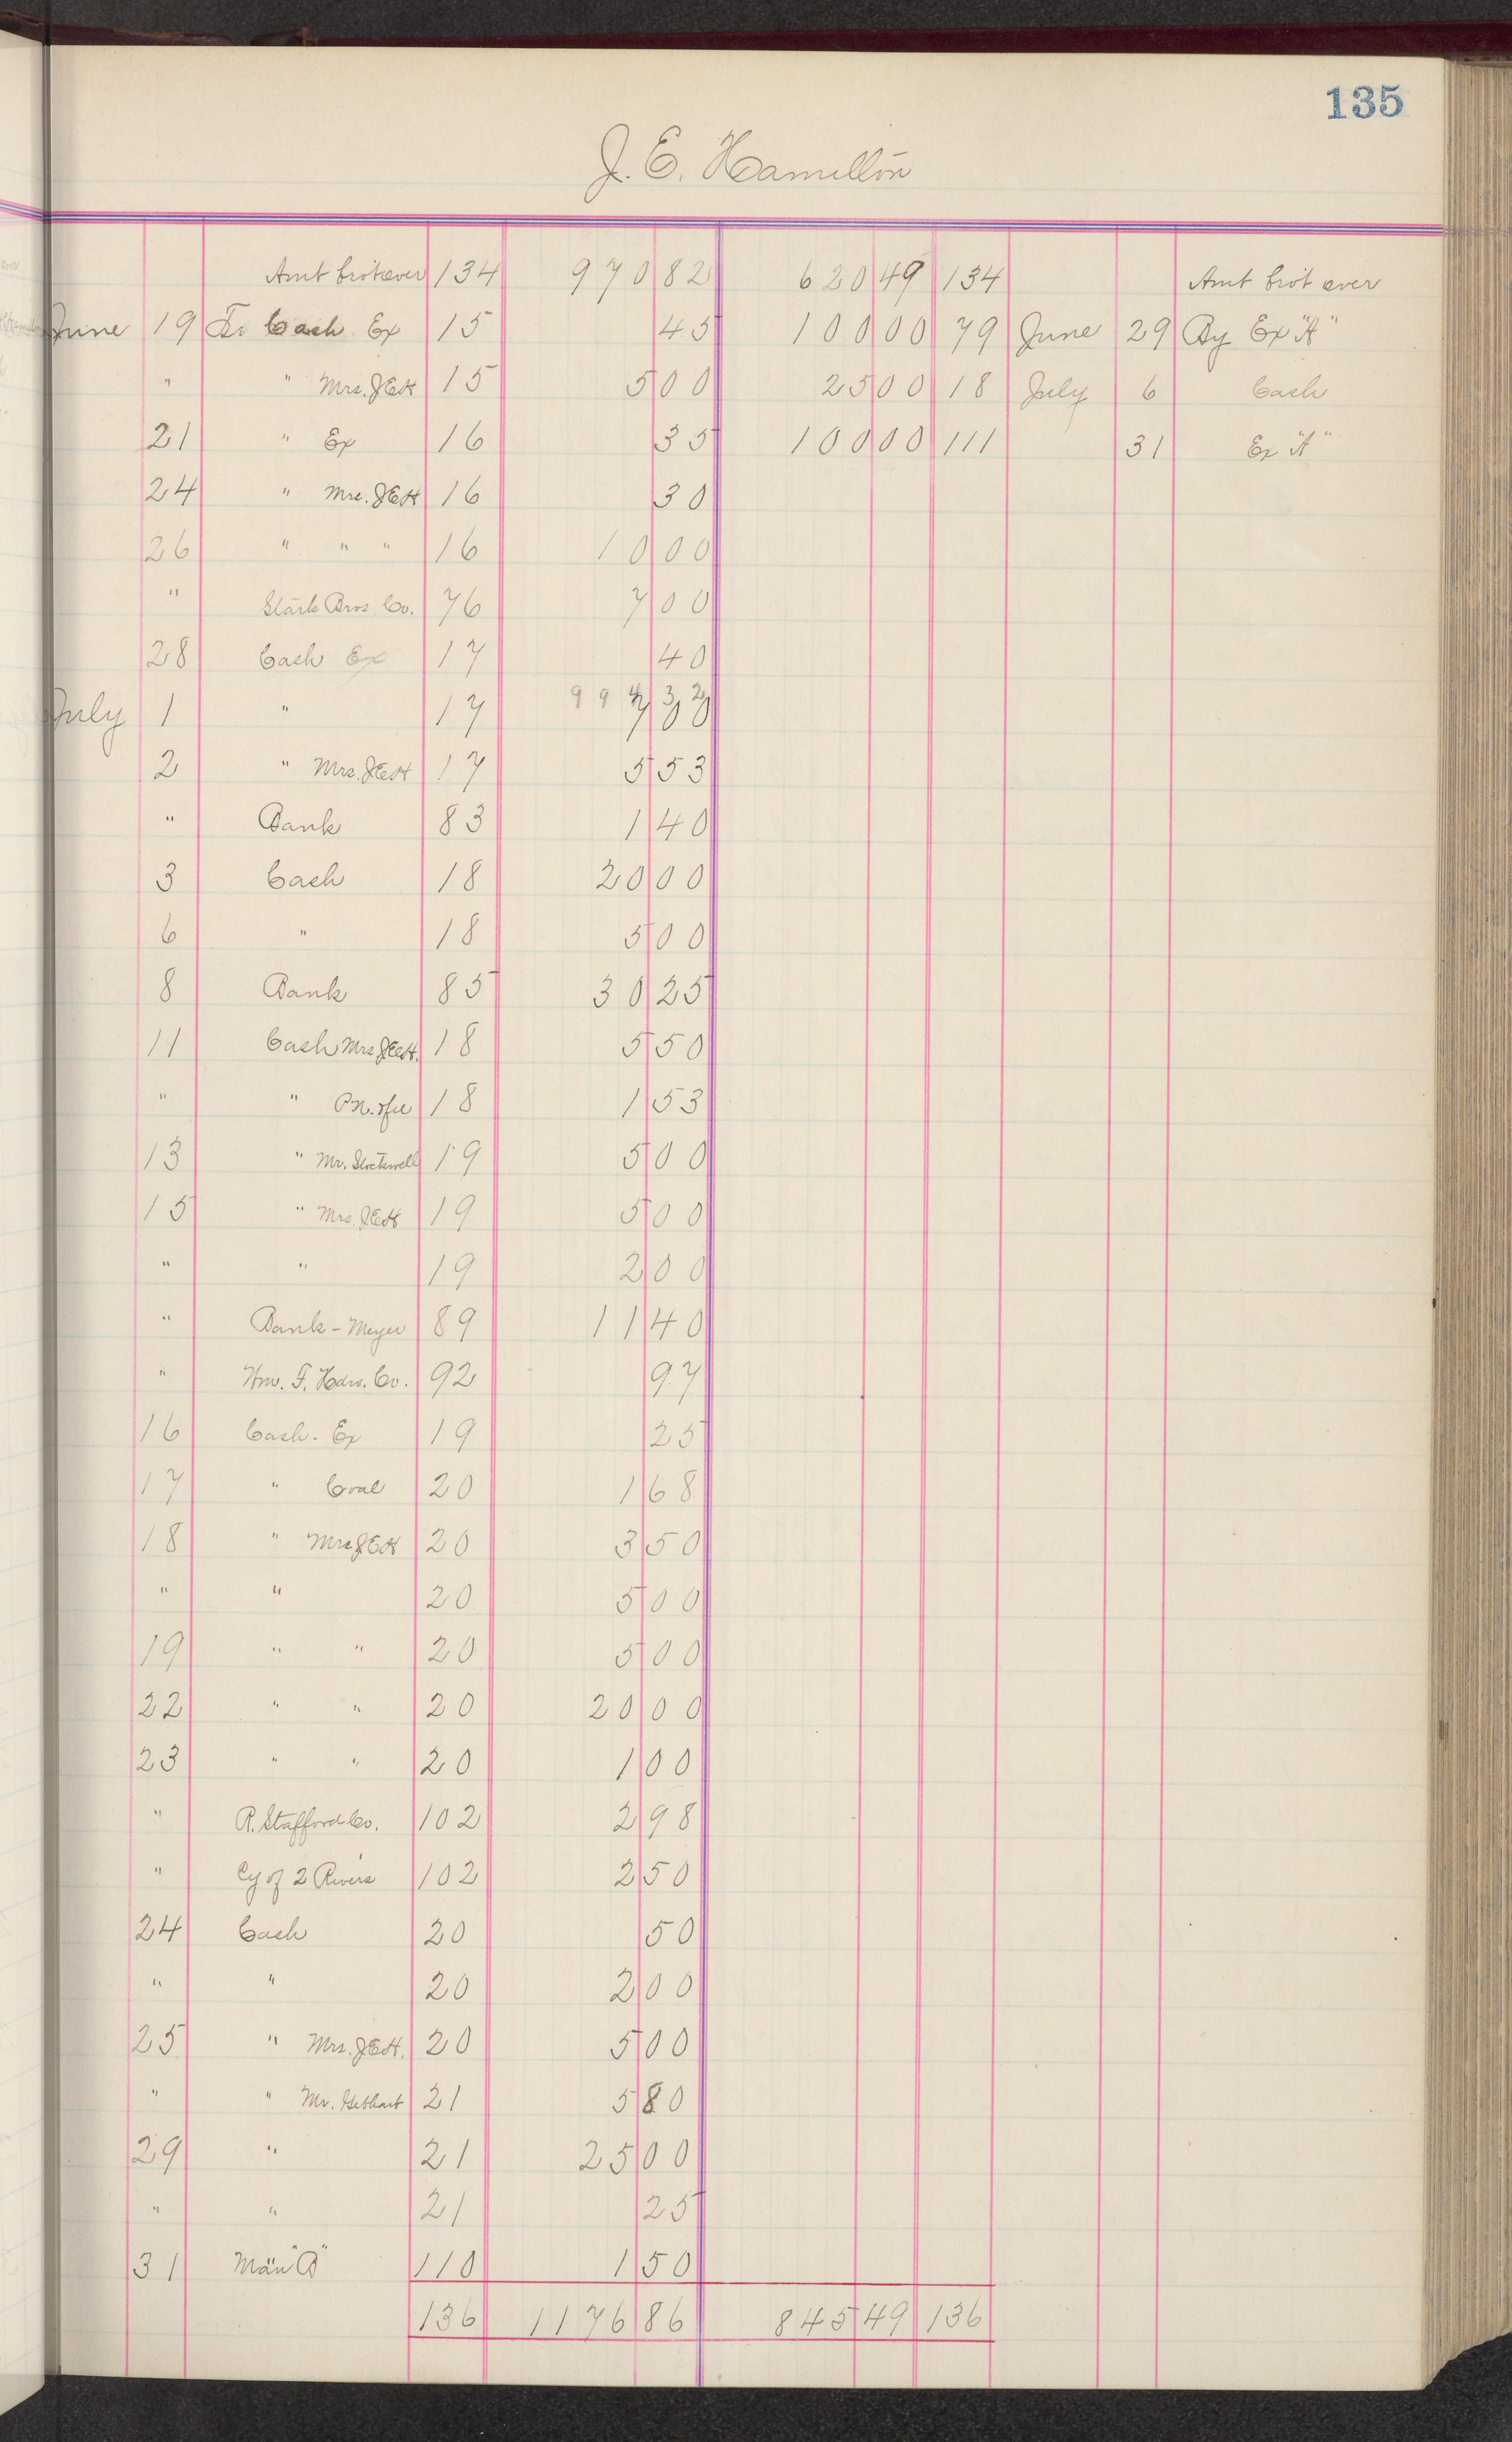 135
J. E. Hamilton
Amt brot over 134 970 82 620 49 134 Amt brot over
June 19 To Cash Ex 15 45 100 00 79 June 29 By Ex "A"
" " Mrs. JEH 15 5 00 25 00 18 July 6 Cash
21 " Ex 16 35 100 00 111 31 Ex "A"
24 " Mrs. JEH 16 30
26 " " " 16 10 00
" Stark Bros. Co. 76 7 00
28 Cash Ex 17 40
994 32
July 1 " 17 7 00
2 " Mrs. JEH 17 5 53
" Bank 83 1 40
3 Cash 18 20 00
6 " 18 5 00
8 Bank 85 30 25
11 Cash Mrs JEH. 18 5 50
" " 18 1 53
13 " Mr. 19 5 00
15 " Mrs. JEH 19 5 00
" " 19 2 00
" Bank - Meyer 89 11 40
" Hm. F. Hdw. Co. 92 97
16 Cash - Ex 19 25
17 " Coal 20 1 68
18 " Mrs JEH 20 3 50
" " 20 5 00
19 " " 20 5 00
22 " " 20 20 00
23 " " 20 1 00
" R. Stafford Co. 102 2 98
" Cy of 2 Rivers 102 2 50
24 Cash 20 50
" " 20 2 00
25 " Mrs. JEH. 20 5 00
" " Mr. Gebhart 21 5 80
29 " 21 25 00
" " 21 25
31 Man "B" 110 1 50
136 1176 86 845 49 136